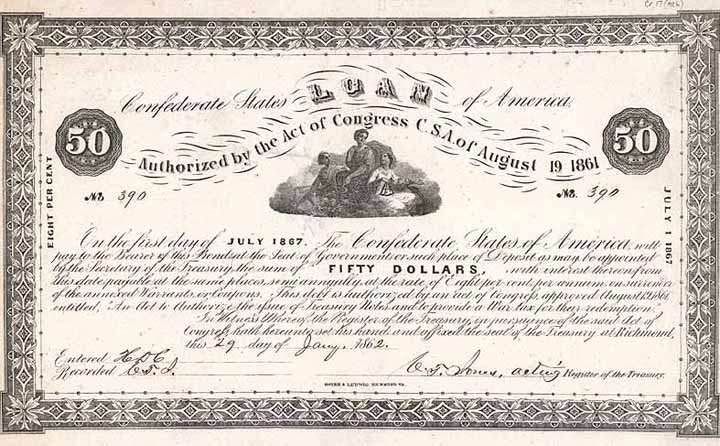 Confederate States LOAN of America.
50 50
Authorized by the Act of Congress C.S.A. of August 19 1861
No. 390 No. 390
EIGHT PER CENT
JULY 1 1867
On the first day of JULY 1867. The Confederate States of America will
pay to the Bearer of this Bond at the Seat of Government or such place of Deposit as may be appointed
by the Secretary of the Treasury, the sum of FIFTY DOLLARS, with interest thereon from
this date payable at the same places, semi annually, at the rate of Eight per cent. per annum on surrender
of the annexed Warrants or Coupons. This debt is authorized by an act of Congress approved August 1861,
entitled, "An Act to Authorize the Issue of Treasury Notes and to provide a War tax for their redemption.
In Witness Whereof, the Register of the Treasury, in pursuance of the said Act of
Congress, hath hereunto set his hand and affixed the seal of the Treasury at Richmond,
this 29 day of Jany. 1862.
Entered
Recorded C. T. J.
C. T. Jones, acting Register of the Treasury.
HOYER & LUDWIG, RICHMOND VA.